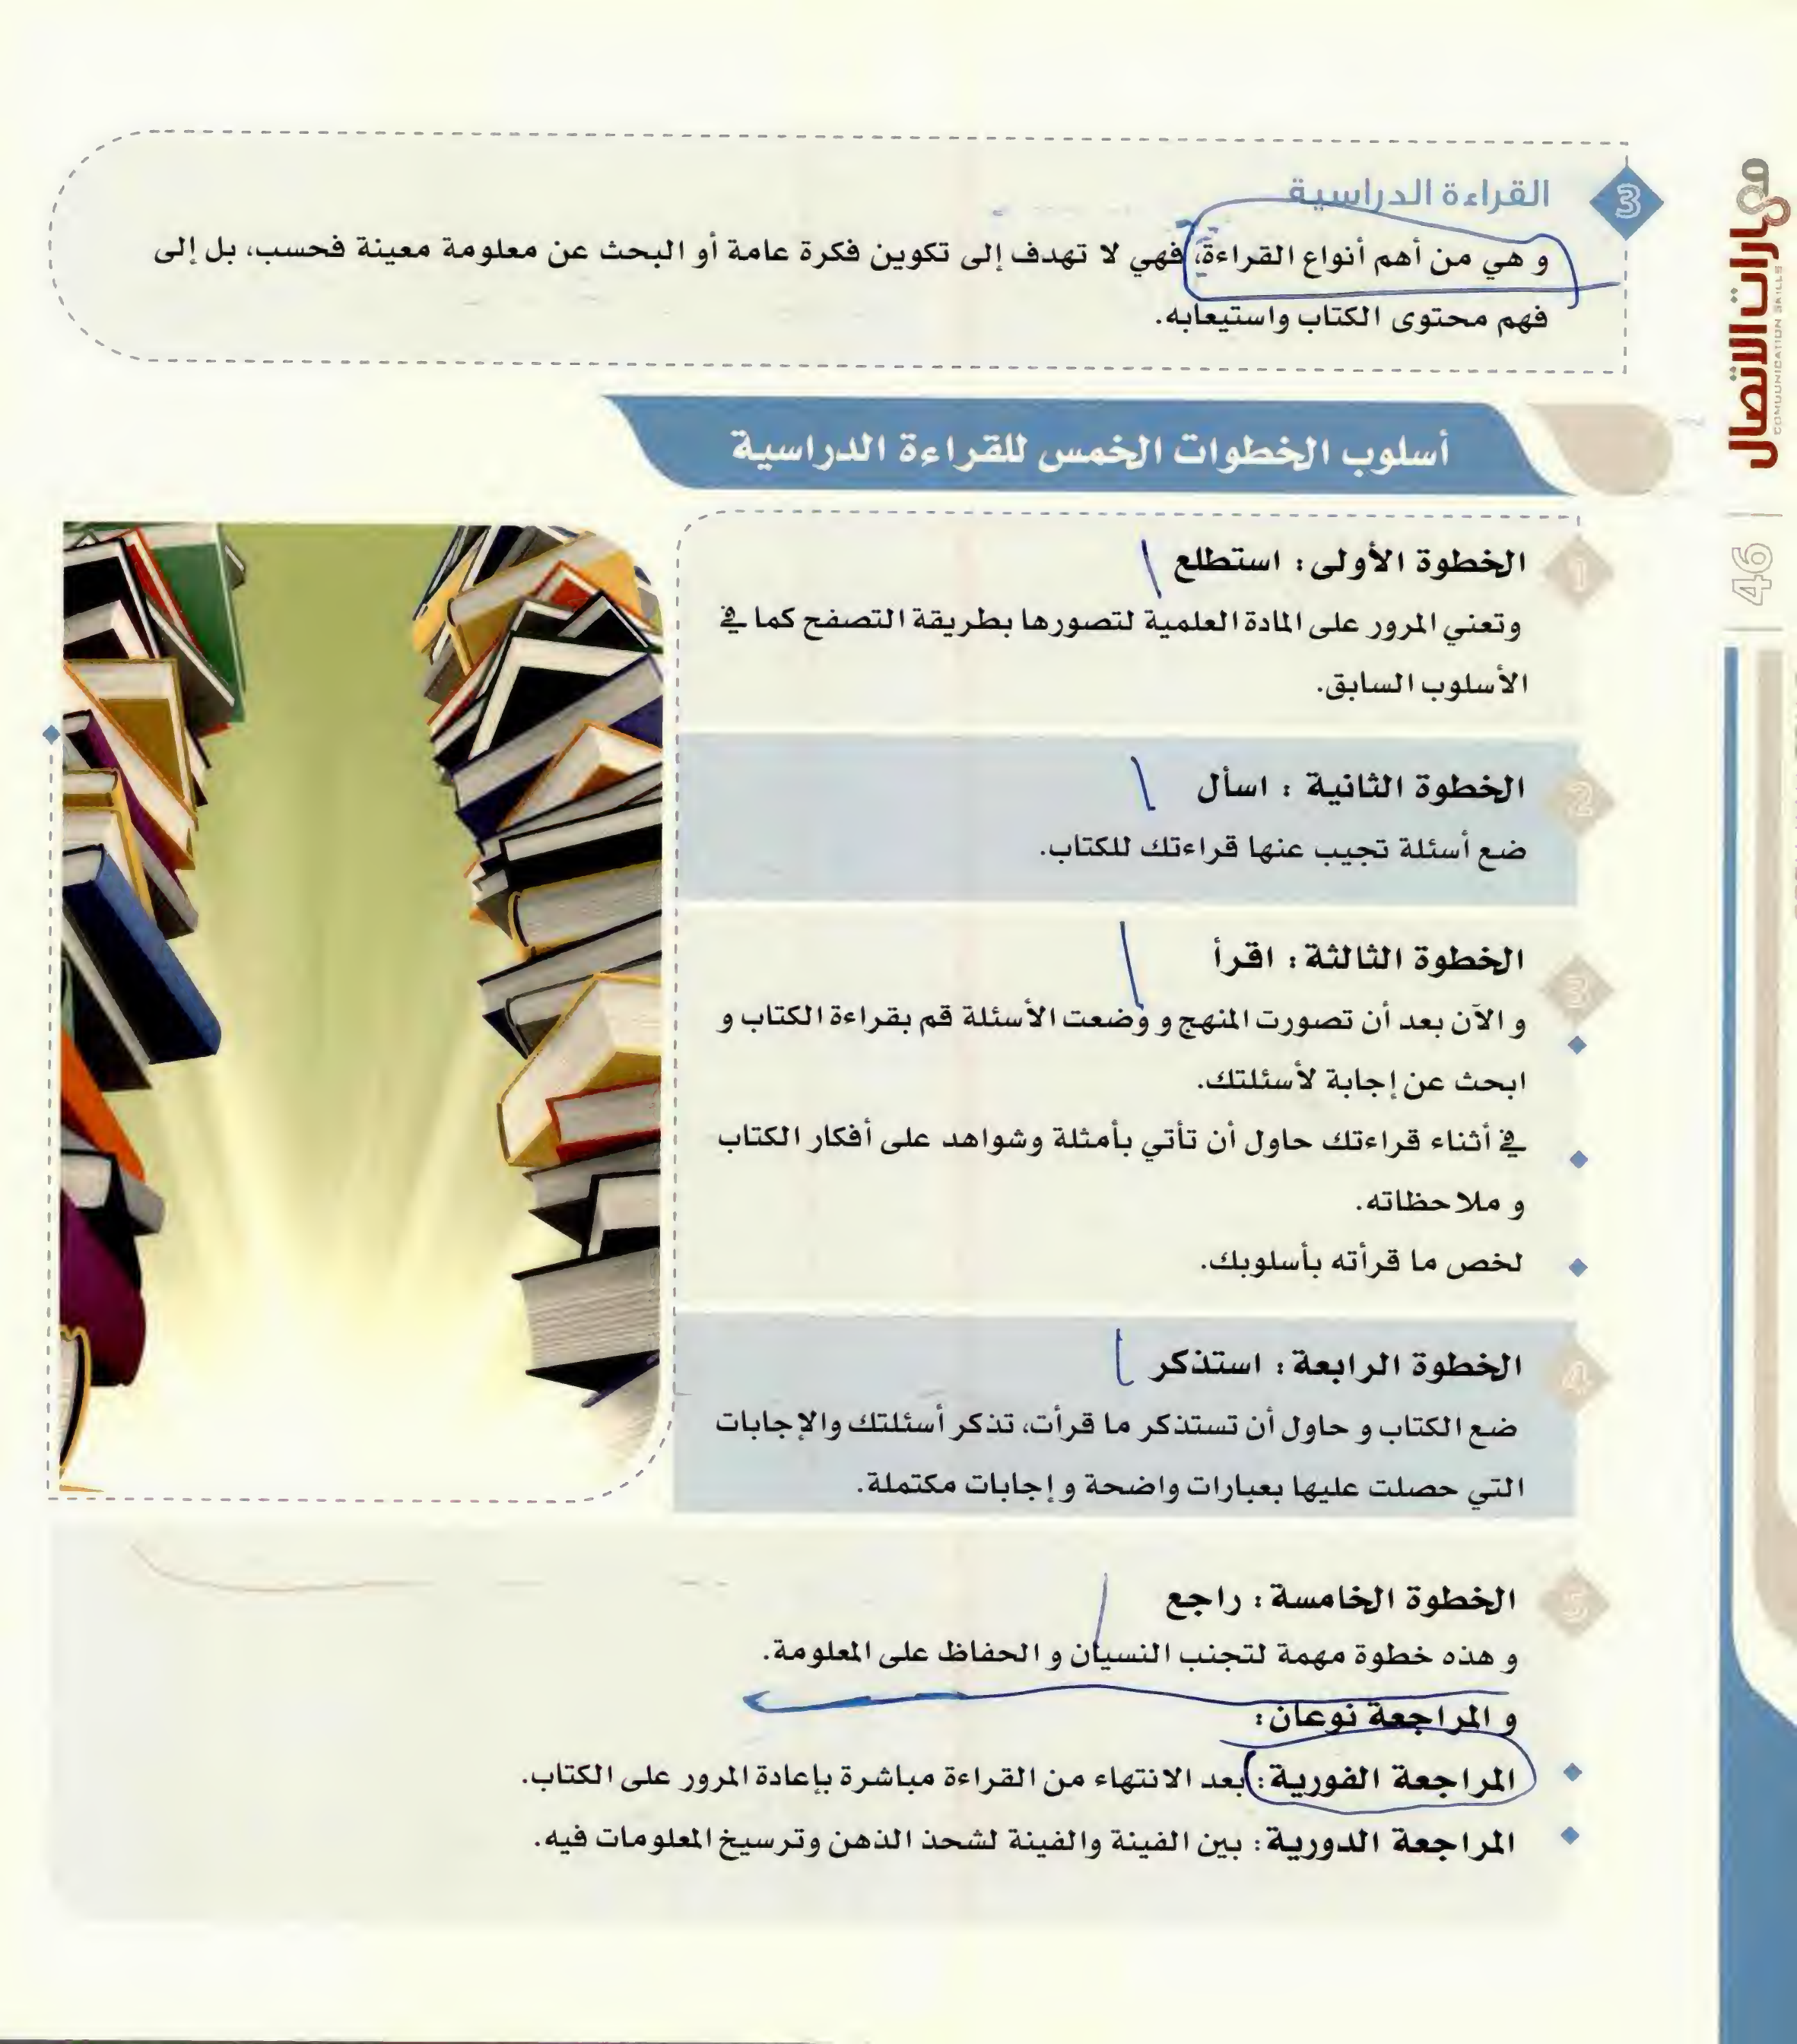 3
القراءة الدراسية
و هي من أهم أنواع القراءة، فهي لا تهدف إلى تكوين فكرة عامة أو البحث عن معلومة معينة فحسب، بل إلى
فهم محتوى الكتاب واستيعابه.
مهارات الاتصال
COMUUNICATION SKILLS
46
أسلوب الخطوات الخمس للقراءة الدراسية
1
الخطوة الأولى: استطلع
وتعني المرور على المادة العلمية لتصورها بطريقة التصفح كما في
الأسلوب السابق.
2
الخطوة الثانية : اسأل
ضع أسئلة تجيب عنها قراءتك للكتاب.
3
الخطوة الثالثة: اقرأ
و الآن بعد أن تصورت المنهج و وضعت الأسئلة قم بقراءة الكتاب و
ابحث عن إجابة لأسئلتك.
في أثناء قراءتك حاول أن تأتي بأمثلة وشواهد على أفكار الكتاب
و ملاحظاته.
لخص ما قرأته بأسلوبك.
4
الخطوة الرابعة: استذكر
ضع الكتاب و حاول أن تستذكر ما قرأت، تذكر أسئلتك والإجابات
التي حصلت عليها بعبارات واضحة و إجابات مكتملة.
5
الخطوة الخامسة: راجع
و هذه خطوة مهمة لتجنب النسيان و الحفاظ على المعلومة.
و المراجعة نوعان:
المراجعة الفورية: بعد الانتهاء من القراءة مباشرة بإعادة المرور على الكتاب.
المراجعة الدورية: بين الفينة والفينة لشحذ الذهن وترسيخ المعلومات فيه.